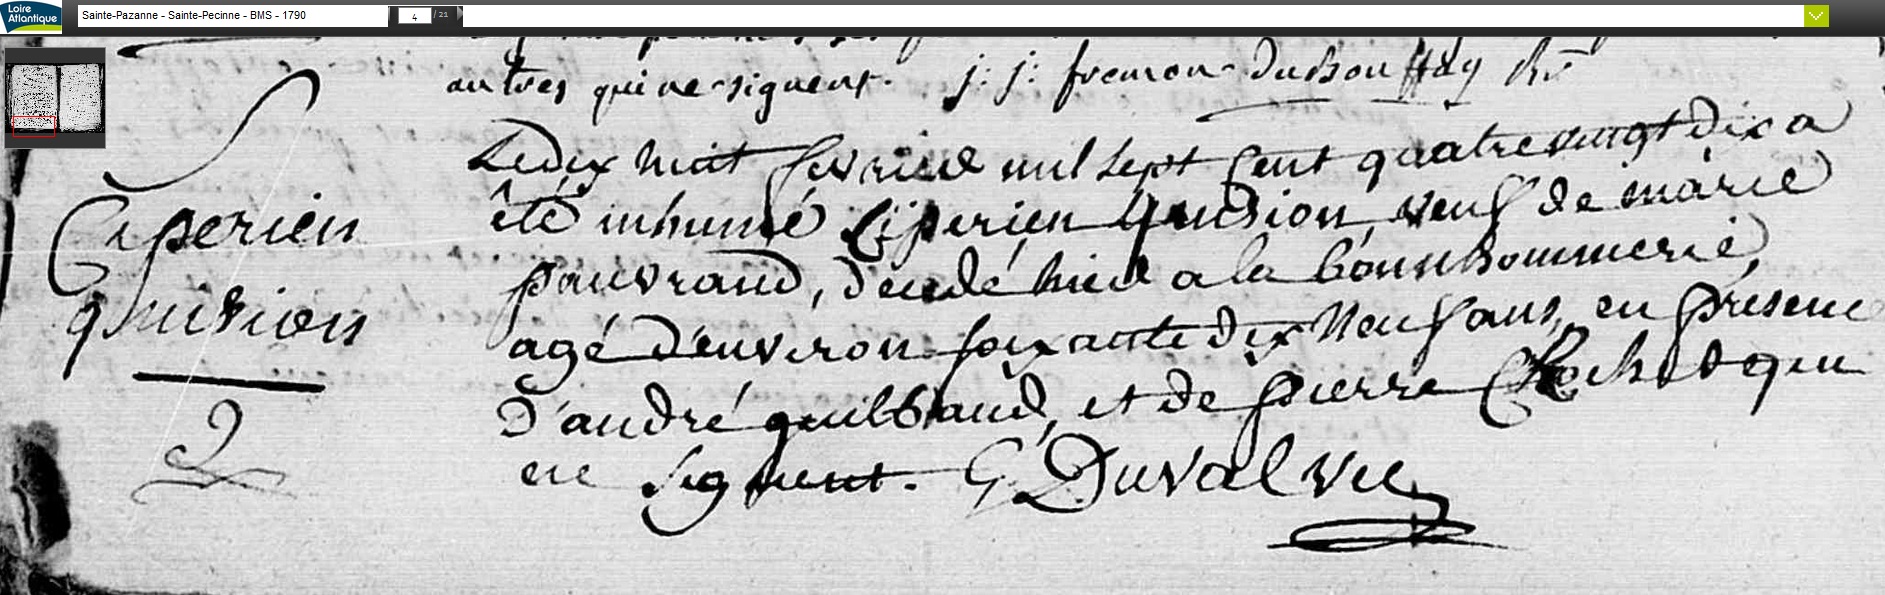 Loire
Atlantique
Sainte-Pazanne - Sainte-Pecinne - BMS - 1790
4 / 21
autres qui ne signent. j: j: fremon Dubouffay
Le dix huit fevrier mil sept cent quatre vingt dix a
été inhumé Ciperien Guision, veuf de marie
pauvraud, decedé hier a la bonnhommerie,
agé d'environ soixante dix Neuf ans, en presence
D'andré guilbaud, et de pierre qui
ne signent. G Duval vic
Ciperien
guision
2